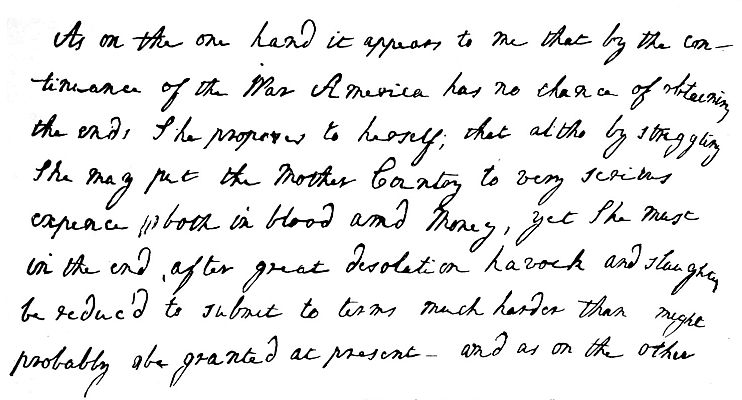 As on the one hand it appears to me that by the con-
tinuance of the War America has no chance of obtaining
the ends She proposes to herself; that altho by struggling
She may put the Mother Country to very serious
expence both in blood and Money, yet She must
in the end, after great desolation havock and slaughter
be reduc'd to submit to terms much harder than might
probably be granted at present - and as on the other